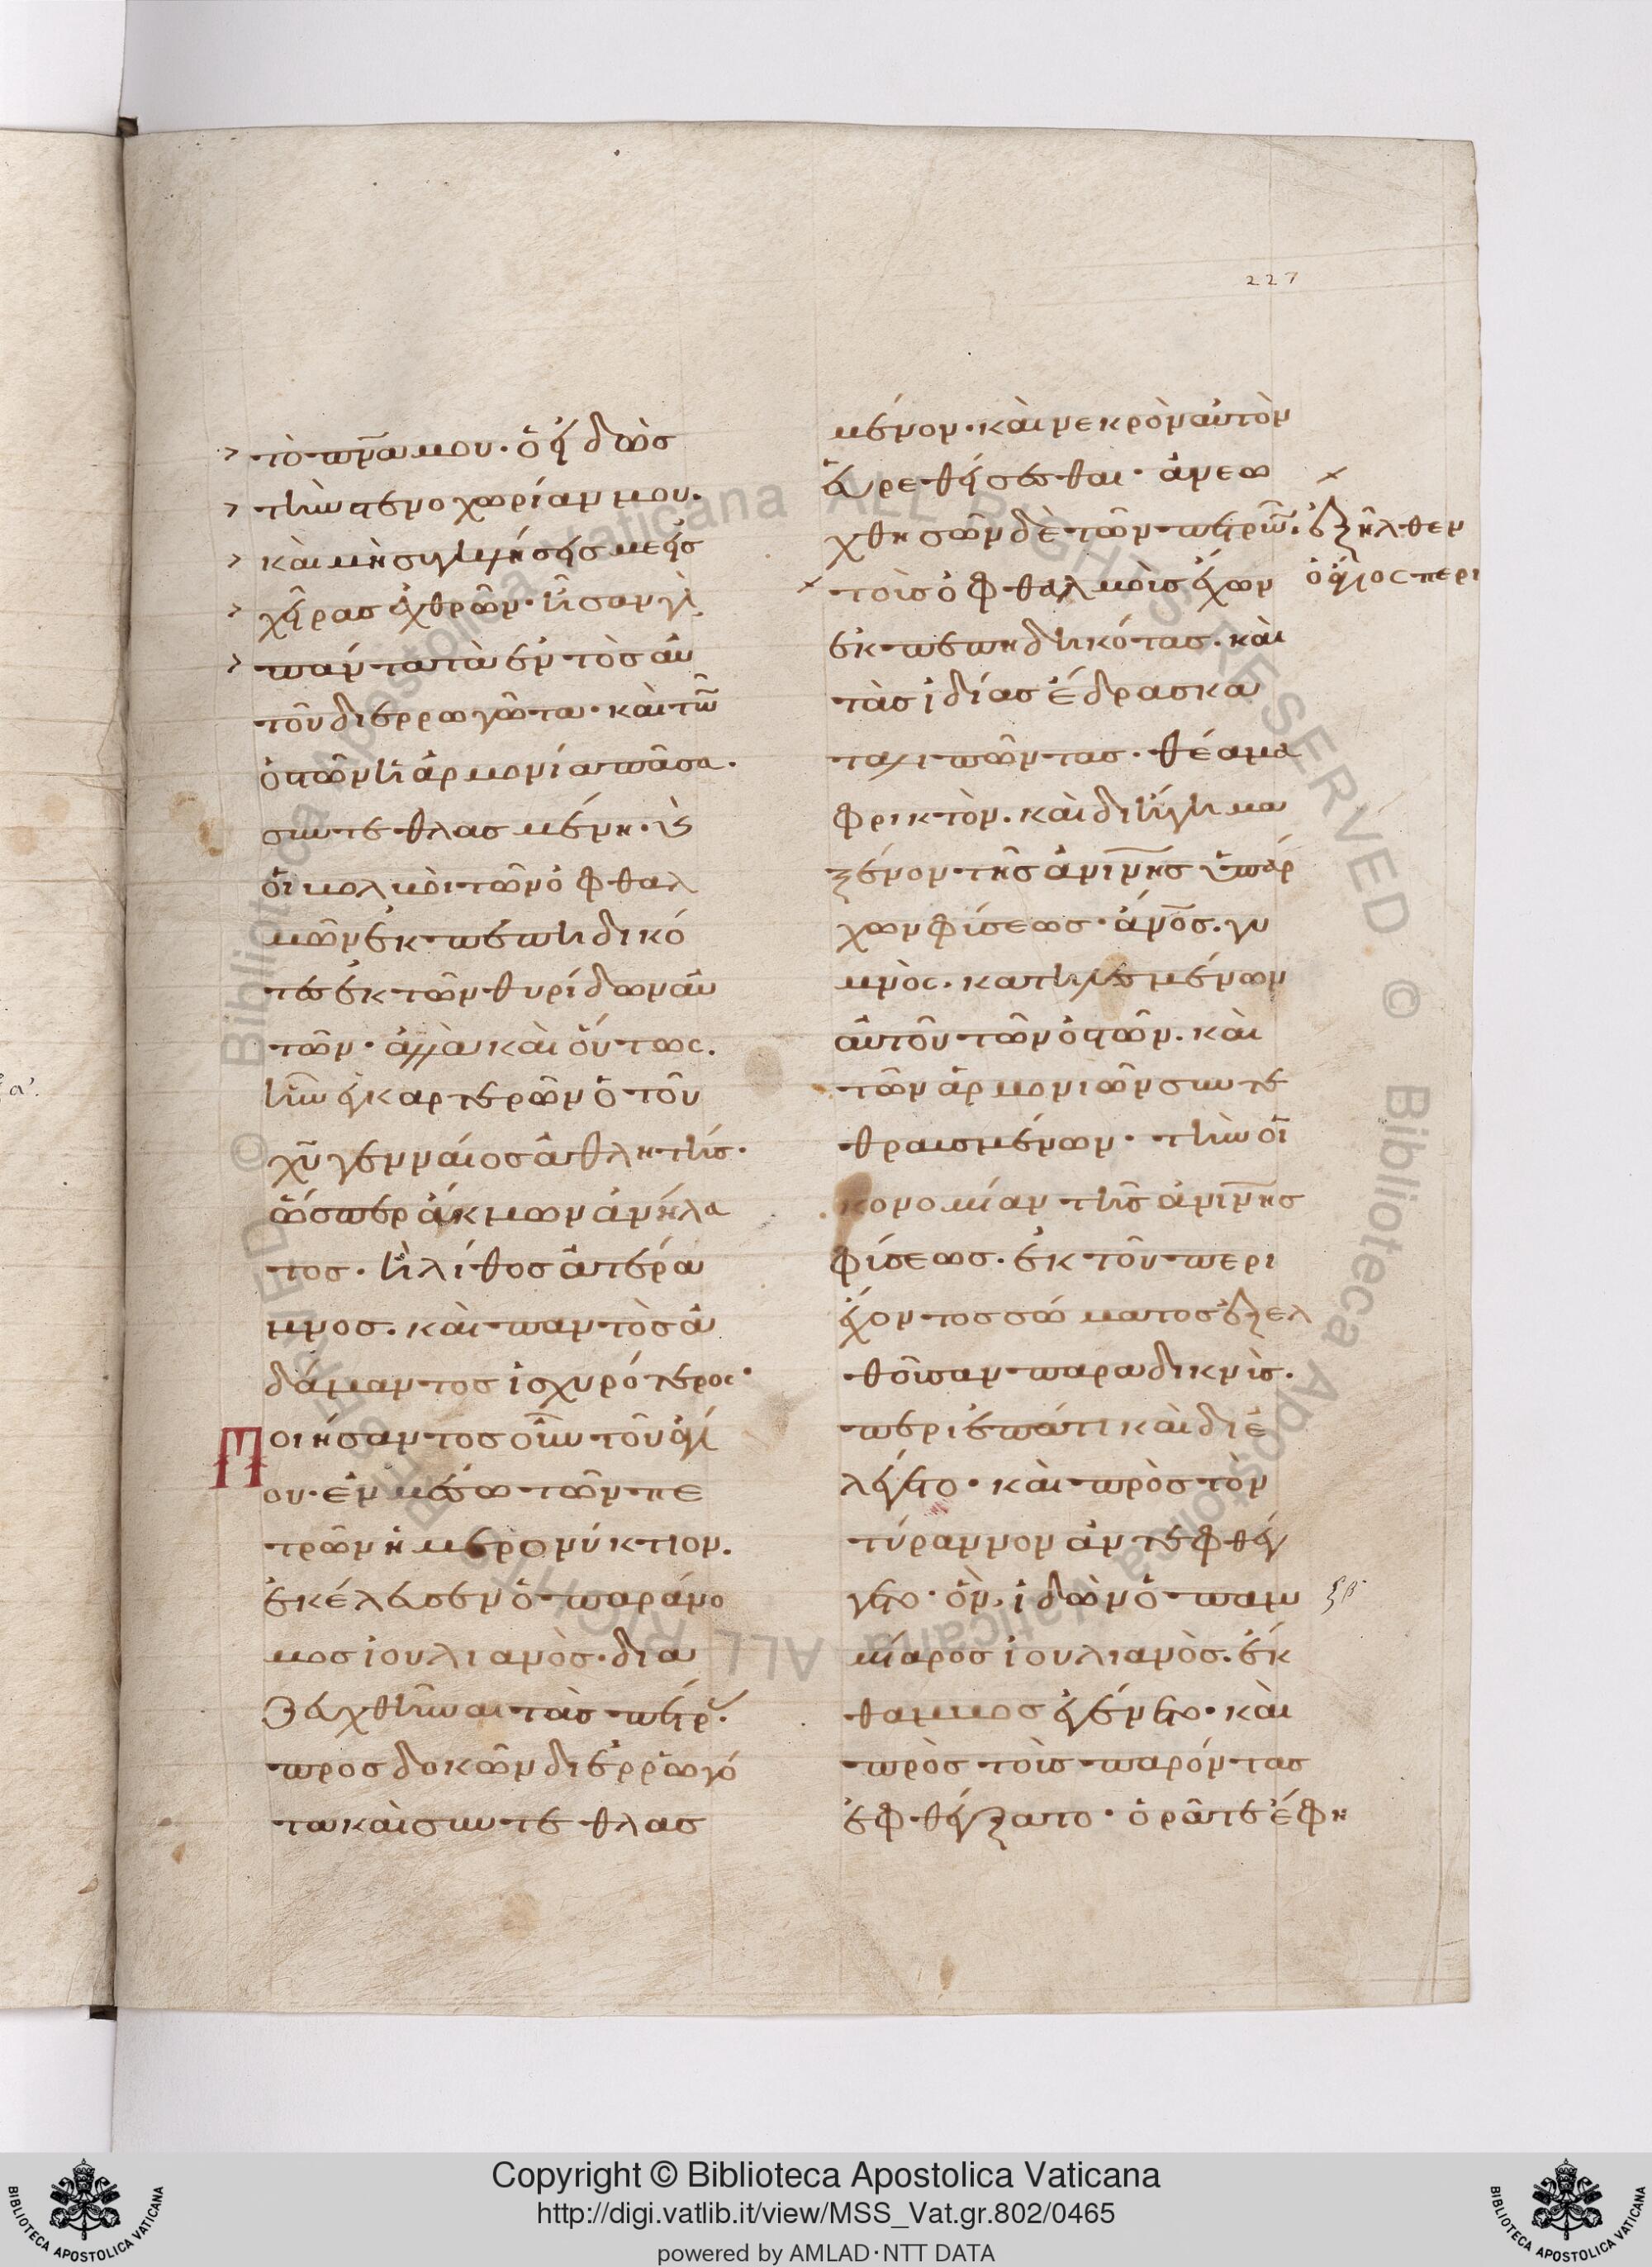 227
τὸ πν̅α μου· ὁ εἰδὼς
τὴν στενοχωρίαν μου·
καὶ μὴ συγκλείσῃς με εἰς
χεῖρας ἐχθρῶν· ἦσαν γὰρ
πάντα τὰ ἐντὸς αὐ
τοῦ διερρωγῶτα· καὶ τῶν
ὀστῶν ἡ ἁρμονία πᾶσα·
συντεθλασμένη· καὶ
οἱ μολμοὶ τῶν ὀφθαλ
μῶν ἐκπεπηδικό
τες ἐκ τῶν θυρίδων αὐ
τῶν· ἀλλὰ καὶ οὕτως·
ἦν ἐγκαρτερῶν ὁ τοῦ
χυ̅ γενναίος ἀθλητής·
ὥσπερ ἄκμων ἀνήλα
τος· ἢ λίθος ἀτέρα
μνος· καὶ παντὸς ἀ
δάμαντος ἰσχυρότερος·
Ποιήσαντος οὖν τοῦ ἁγί
ου· ἐν μέσω τῶν πε
τρῶν ἡμερονύκτιον·
ἐκέλευσεν ὁ παράνο
μος ἰουλιανὸς· δια
ζευχθῆναι τὰς πέτρ·
προσδοκῶν διερρωγό
τα καὶ συντεθλασ
μένον· καὶ νεκρὸν αὐτὸν
εὑρεθήσεσθαι· ἀνεω
χθησῶν δὲ τῶν πετρῶν· ἐξῆλθεν
τοὺς ὀφθαλμοὺς ἔχων ὁ ἅγιος περι
ἐκπεπηδηκότας· καὶ
τὰς ἰδίας ἕδρας κα
ταλιπῶντας· θέαμα
φρικτὸν· καὶ διήγημα
ξένον τῆς ἀν̅ι̅ν̅ης ὑπάρ
χων φύσεως· ἄν̅ο̅ς· γυ
μνὸς· κατηλεσμένων
αὐτοῦ τῶν ὀστῶν· καὶ
τῶν ἁρμονιῶν συντε
θραυσμένων· τὴν οἰ
κονομίαν τῆς ἀν̅ι̅ν̅ης
φύσεως· ἐκ τοῦ περι
έχοντος σώματος ἐξελ
θοῦσαν παραδικνὺς·
περιεπάτι καὶ διε
λέγετο· καὶ πρὸς τὸν
τύραννον ἀντεφθέγ
γετο· ὃν ἰδὼν ὁ παμ
ξβ
μίαρος ἰουλιανὸς· ἔκ
θαμμος ἐγένετο· καὶ
πρὸς τοὺς παρόντας
ἐφθέγξατο· ὁρᾶτε ἔφη
Copyright © Biblioteca Apostolica Vaticana
http://digi.vatlib.it/view/MSS_Vat.gr.802/0465
powered by AMLAD·NTT DATA